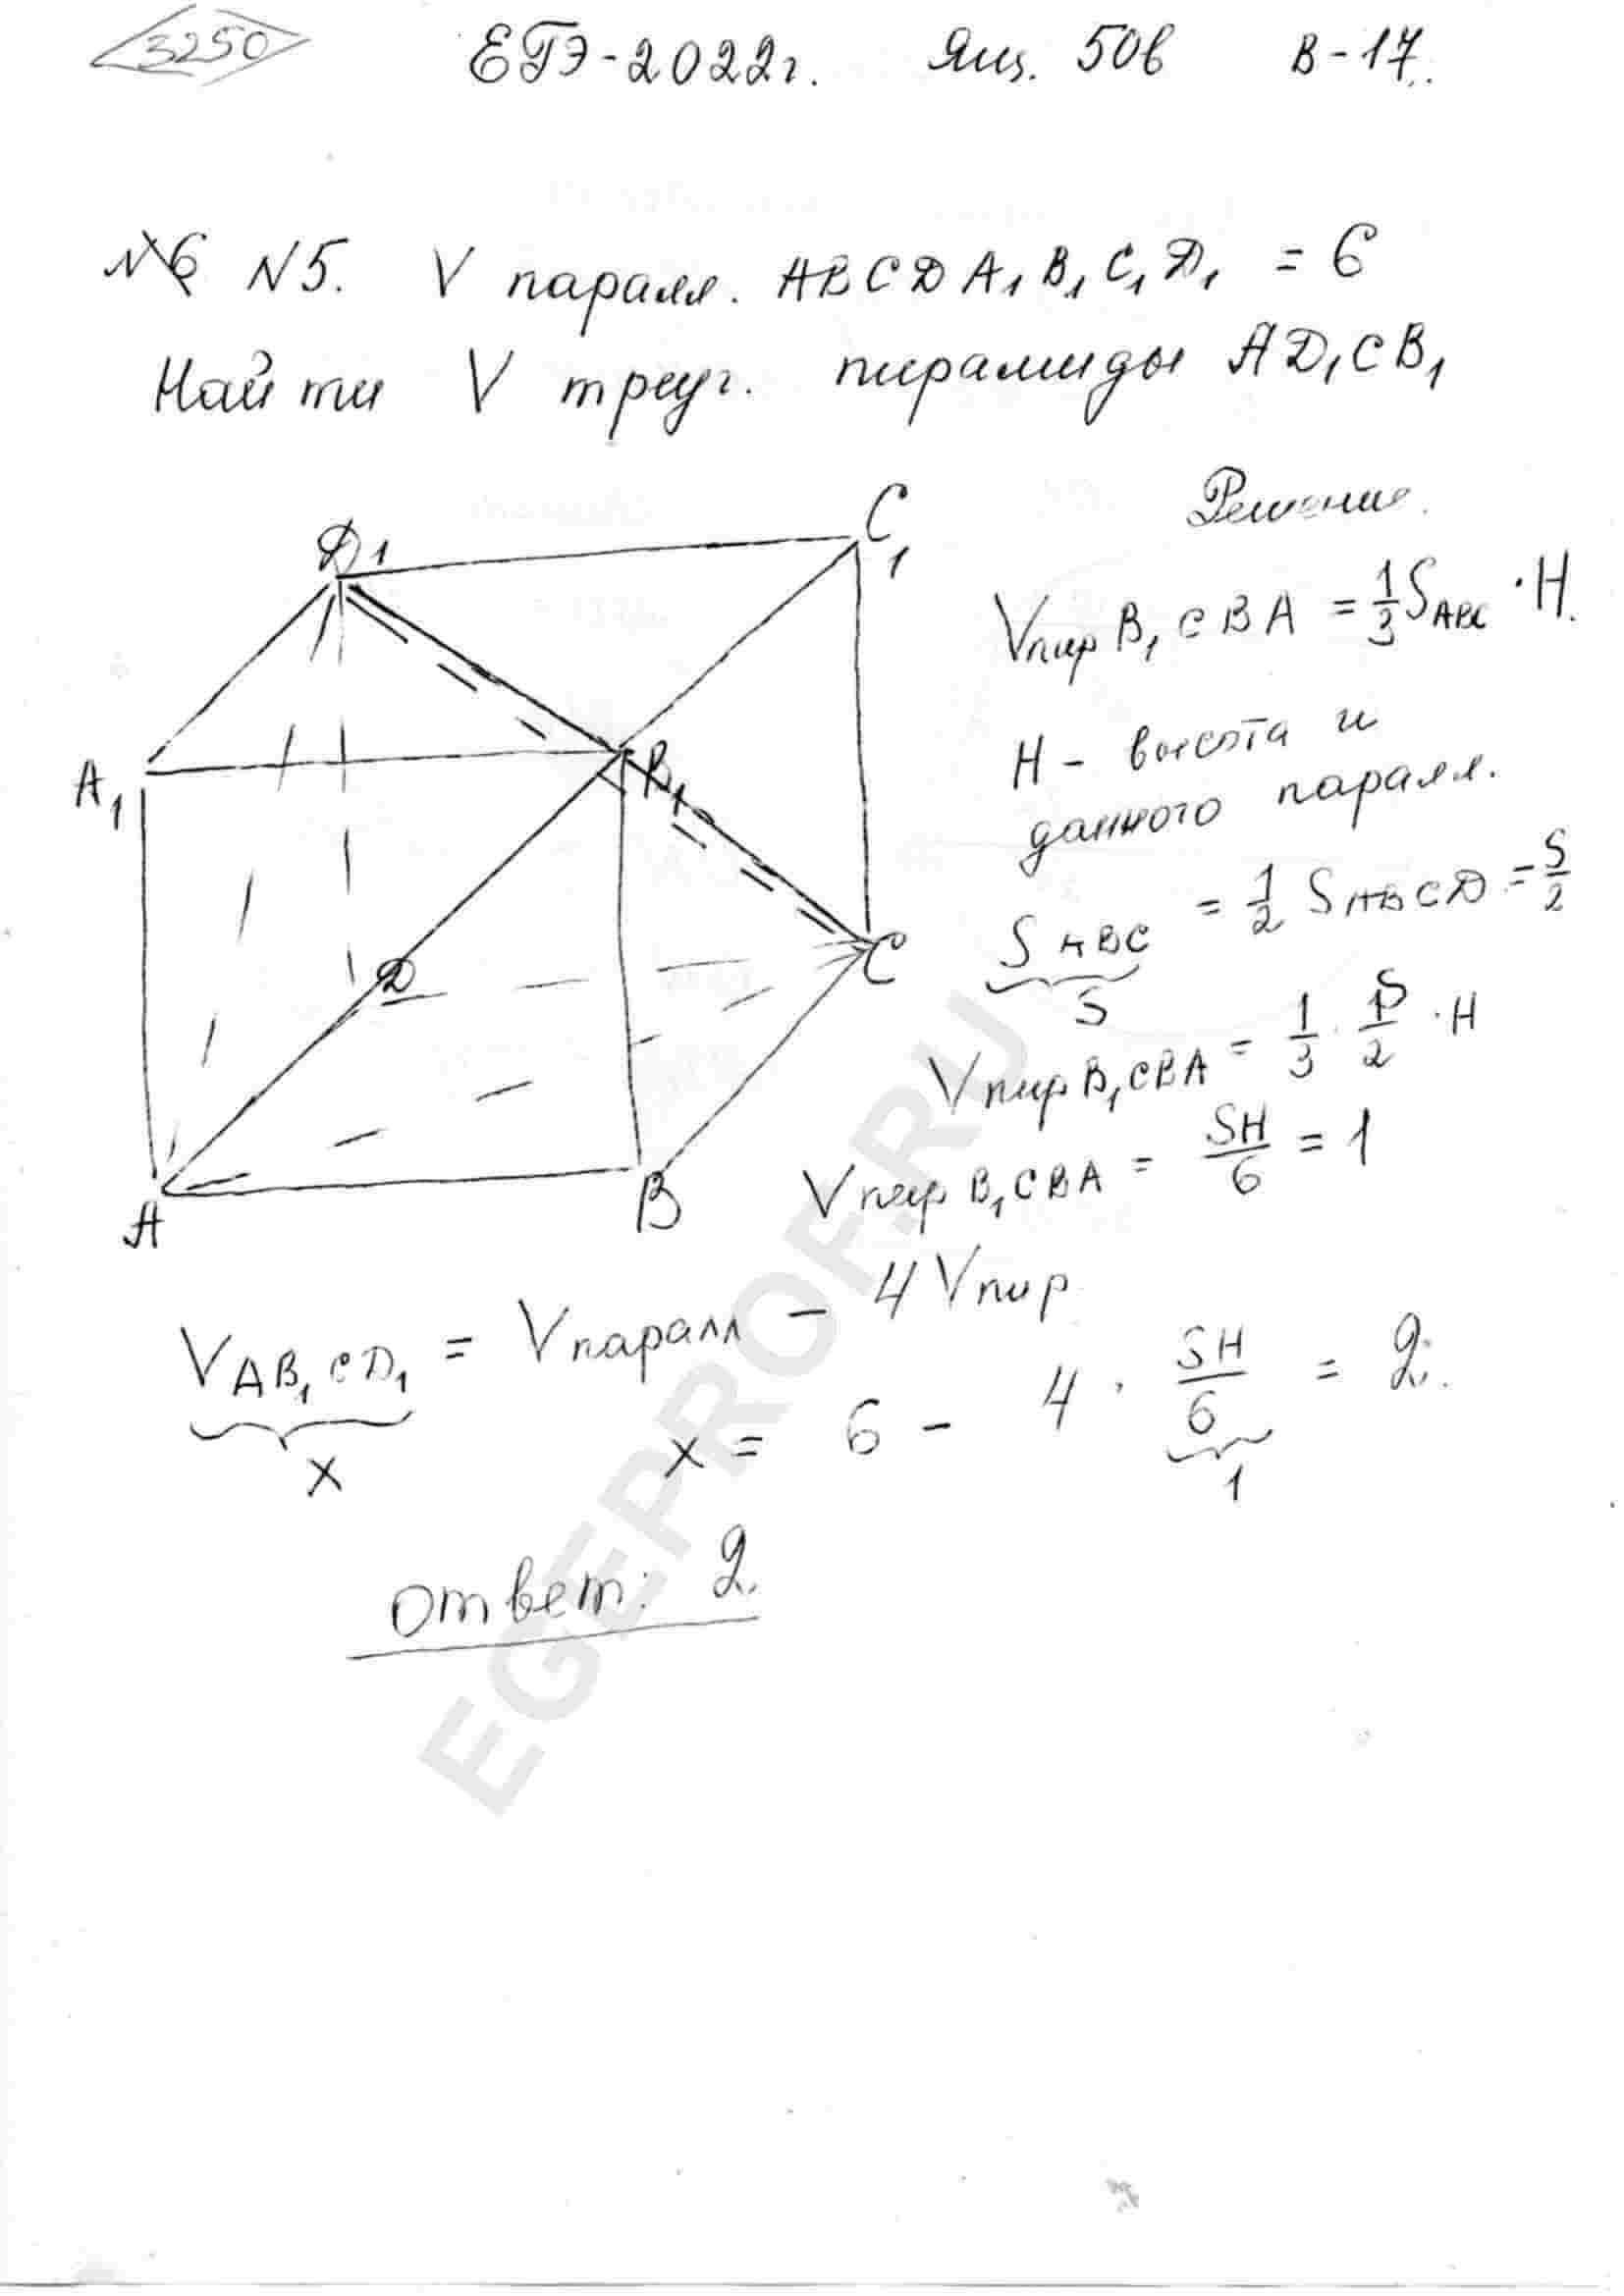 3250 ЕГЭ-2022г. Ящ. 50в В-17.
№6 N5. V паралл. ABCDA₁B₁C₁D₁ = 6
Найти V треуг. пирамиды AD₁CB₁
Решение.
D₁
C₁
A₁
B₁
D
C
A
B
Vпир B₁CBA = 1/3 S ABC · H.
H - высота и
данного паралл.
S ABC = 1/2 S ABCD = S/2
S
Vпир B₁CBA = 1/3 · S/2 · H
Vпир B₁CBA = SH/6 = 1
V AB₁CD₁ = Vпаралл - 4 Vпир
x
x = 6 - 4 · SH/6 = 2.
1
Ответ: 2.
EGEPROF.RU